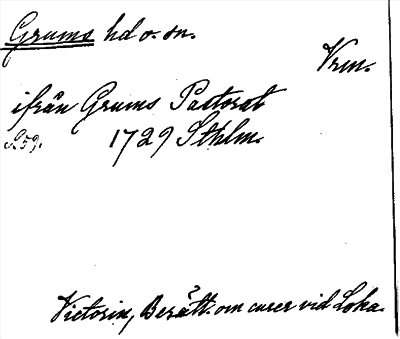 Grums hd o. sn.
Vrm.
ifrån Grums Pastorat
1729 Sthlm.
Victorin, Berätt. om curer vid Loka.